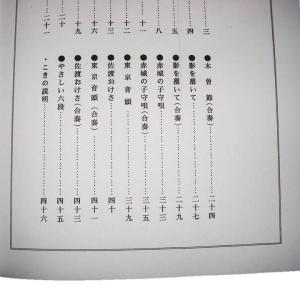 ……三
……四
……五
……八
……十一
……十二
……十三
……十六
……十九
……二十
……二十一
●木曽節(合奏)……二十四
●影を慕いて……二十七
●影を慕いて(合奏)……二十九
●赤城の子守唄……三十三
●赤城の子守唄(合奏)……三十五
●東京音頭……三十九
●佐渡おけさ……四十
●東京音頭(合奏)……四十一
●佐渡おけさ(合奏)……四十三
●やさしい六段……四十五
・こきの説明……四十六